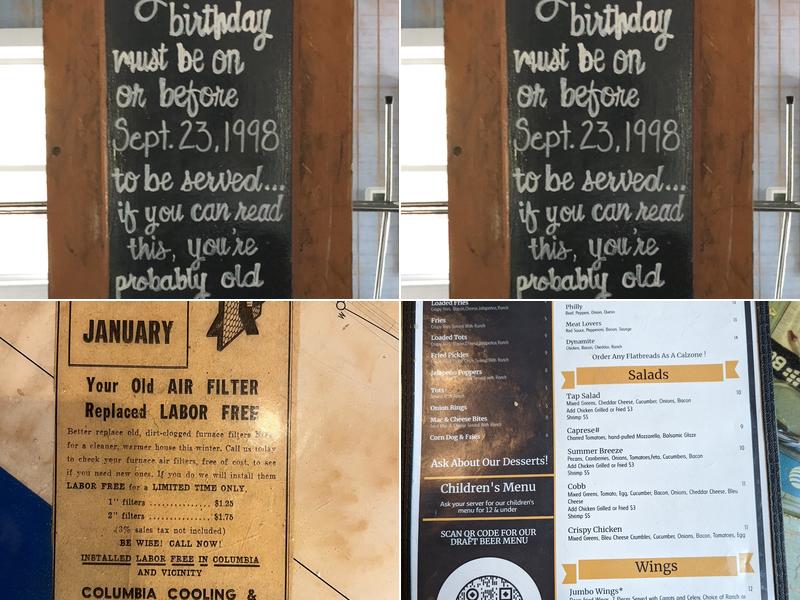 birthday
must be on
or before
Sept. 23, 1998
to be served...
if you can read
this, you're
probably old
birthday
must be on
or before
Sept. 23, 1998
to be served...
if you can read
this, you're
probably old
JANUARY
Your Old AIR FILTER
Replaced LABOR FREE
Better replace old, dirt-clogged furnace filters
for a cleaner, warmer house this winter. Call us today
to check your furnace air filters, free of cost, to see
if you need new ones. If you do we will install them
LABOR FREE for a LIMITED TIME ONLY.
1" filters ............... $1.25
2" filters ............... $1.75
(3% sales tax not included)
BE WISE! CALL NOW!
INSTALLED LABOR FREE IN COLUMBIA
AND VICINITY
COLUMBIA COOLING &
Loaded Fries
Fries
Loaded Tots
Fried Pickles
Jalapeño Poppers
Tots
Onion Rings
Mac & Cheese Bites
Corn Dog & Fries
Ask About Our Desserts!
Children's Menu
Ask your server for our children's
menu for 12 & under
SCAN QR CODE FOR OUR
DRAFT BEER MENU
Philly
Beef, Peppers, Onion, Queso
Meat Lovers
Red Sauce, Pepperoni, Bacon, Sausage
Dynamite
Chicken, Bacon, Cheddar, Ranch
Order Any Flatbreads As A Calzone !
Salads
Tap Salad 10
Mixed Greens, Cheddar Cheese, Cucumber, Onions, Bacon
Add Chicken Grilled or Fried $3
Shrimp $5
Caprese# 9
Charred Tomatoes, hand-pulled Mozzarella, Balsamic Glaze
Summer Breeze 10
Pecans, Cranberries, Onions, Tomatoes,Feta, Cucumbers, Bacon
Add Chicken Grilled or Fried $3
Shrimp $5
Cobb 11
Mixed Greens, Tomato, Egg, Cucumber, Bacon, Onions, Cheddar Cheese, Bleu
Cheese
Add Chicken Grilled or Fried $3
Shrimp $5
Crispy Chicken 11
Mixed Greens, Bleu Cheese Crumbles, Cucumber, Onions, Bacon, Tomatoes, Egg
Wings
Jumbo Wings* 12